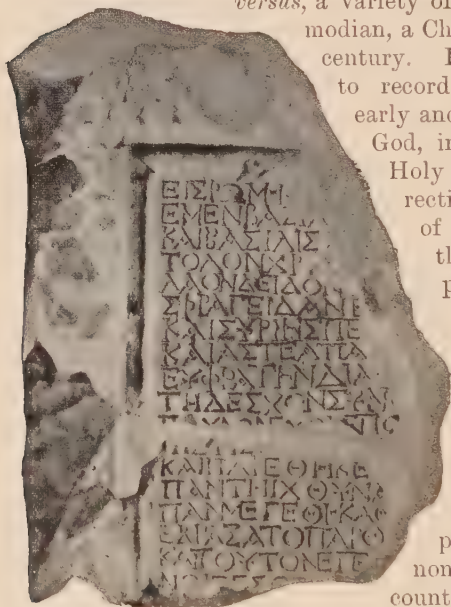 versus, a variety of
modian, a Ch
century.
to record
early and
God, in
Holy
recti
of
th
p
ΕΙΣΡΩΜΗ
ΕΜΕΝΒΑΣΙ
ΚΑΙΒΑΣΙΛΙΣ
ΤΟΛΟΝΧΡ
ΛΑΟΝΔΕΙΔΟΝ
ΣΦΡΑΓΕΙΔΑΝΕ
ΚΑΙΣΥΡΙΗΣΠΕ
ΚΑΙΑΣΤΕΑΠΑ
ΕΥΦΡΑΤΗΝΔΙΑ
ΤΗΔΕΣΧΟΝΣΥΝ
ΚΑΙΠΑΡΕΘΗΚΕ
ΠΑΝΤΗΙΧΘΥΝΑ
ΠΑΝΜΕΓΕΘΗΚΑΘ
ΕΔΡΑΞΑΤΟΠΑΡΘ
ΚΑΙΤΟΥΤΟΝΕΠΕ
p
non
count